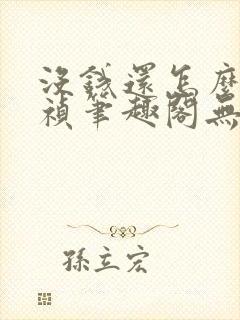 沒錢還怎麼
禎筆趣閣無
孫立宏